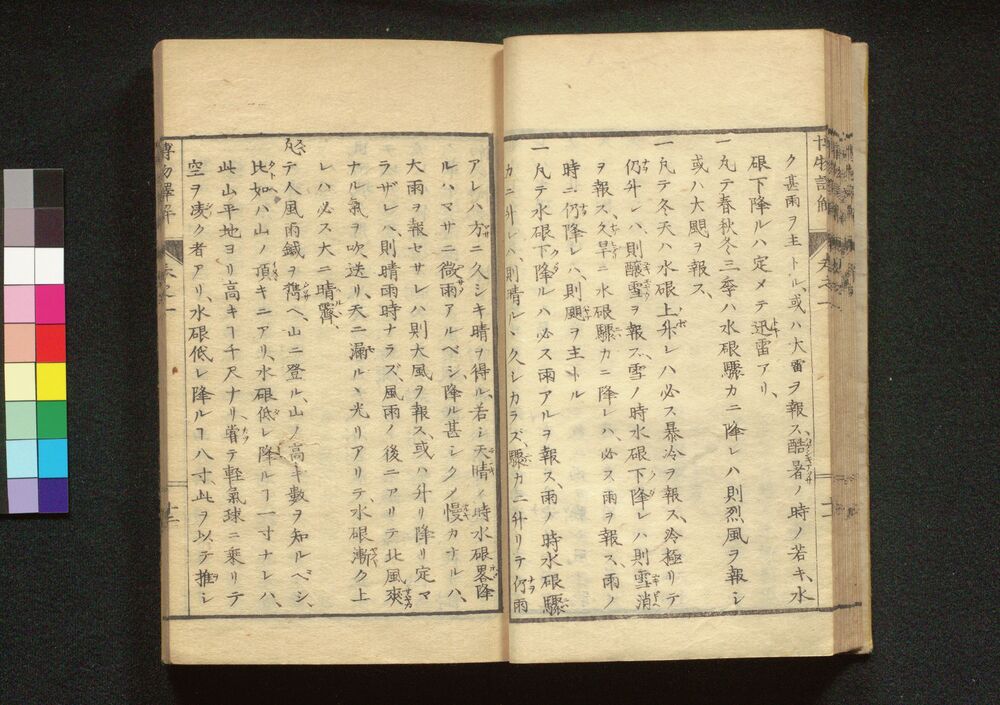 ク甚雨ヲ主トル、或ハ大雷ヲ報ス、酷暑ノ時ノ若キ、水
碾下降ルハ定メテ迅雷アリ、
一凡テ春秋冬三季ハ水碾驟カニ降レハ則烈風ヲ報シ
或ハ大颶ヲ報ス、
一凡テ冬天ハ水碾上升レハ必ス暴冷ヲ報ス、冷極リテ
仍升レハ、則釀雪ヲ報ス、雪ノ時水碾下降レハ則雪消
ヲ報ス、久旱ニ水碾驟カニ降レハ、必ス雨ヲ報ス、雨ノ
時ニ仍降レハ、則颶ヲ主トル
一凡テ水碾下降ルハ必ス雨アルヲ報ス、雨ノ時水碾驟
カニ升レハ、則晴ル、久シカラズ、驟カニ升リテ仍雨
アレハ方ニ久シキ晴ヲ得ル、若シ天晴ノ時水碾畧降
ルハマサニ微雨アルベシ、降ル甚シクノ慢カナルハ、
大雨ヲ報セサレハ則大風ヲ報ス、或ハ升リ降リ定マ
ラザレハ、則晴雨時ナラズ、風雨ノ後ニアリテ北風爽
ナル氣ヲ吹送リ、天ニ漏ルヽ光リアリテ水碾漸ク上
レハ必ス大ニ晴霽、
凡テ人風雨鍼ヲ携ヘ、山ニ登ル、山ノ高キ數ヲ知ルベシ、
比如ハ山ノ頂キニアリ、水碾低レ降ルヿ一寸ナレハ、
此山平地ヨリ高キヿ千尺ナリ、嘗テ軽氣球ニ乗リテ
空ヲ凌ク者アリ、水碾低レ降ルヿ八寸、此ヲ以テ推シ